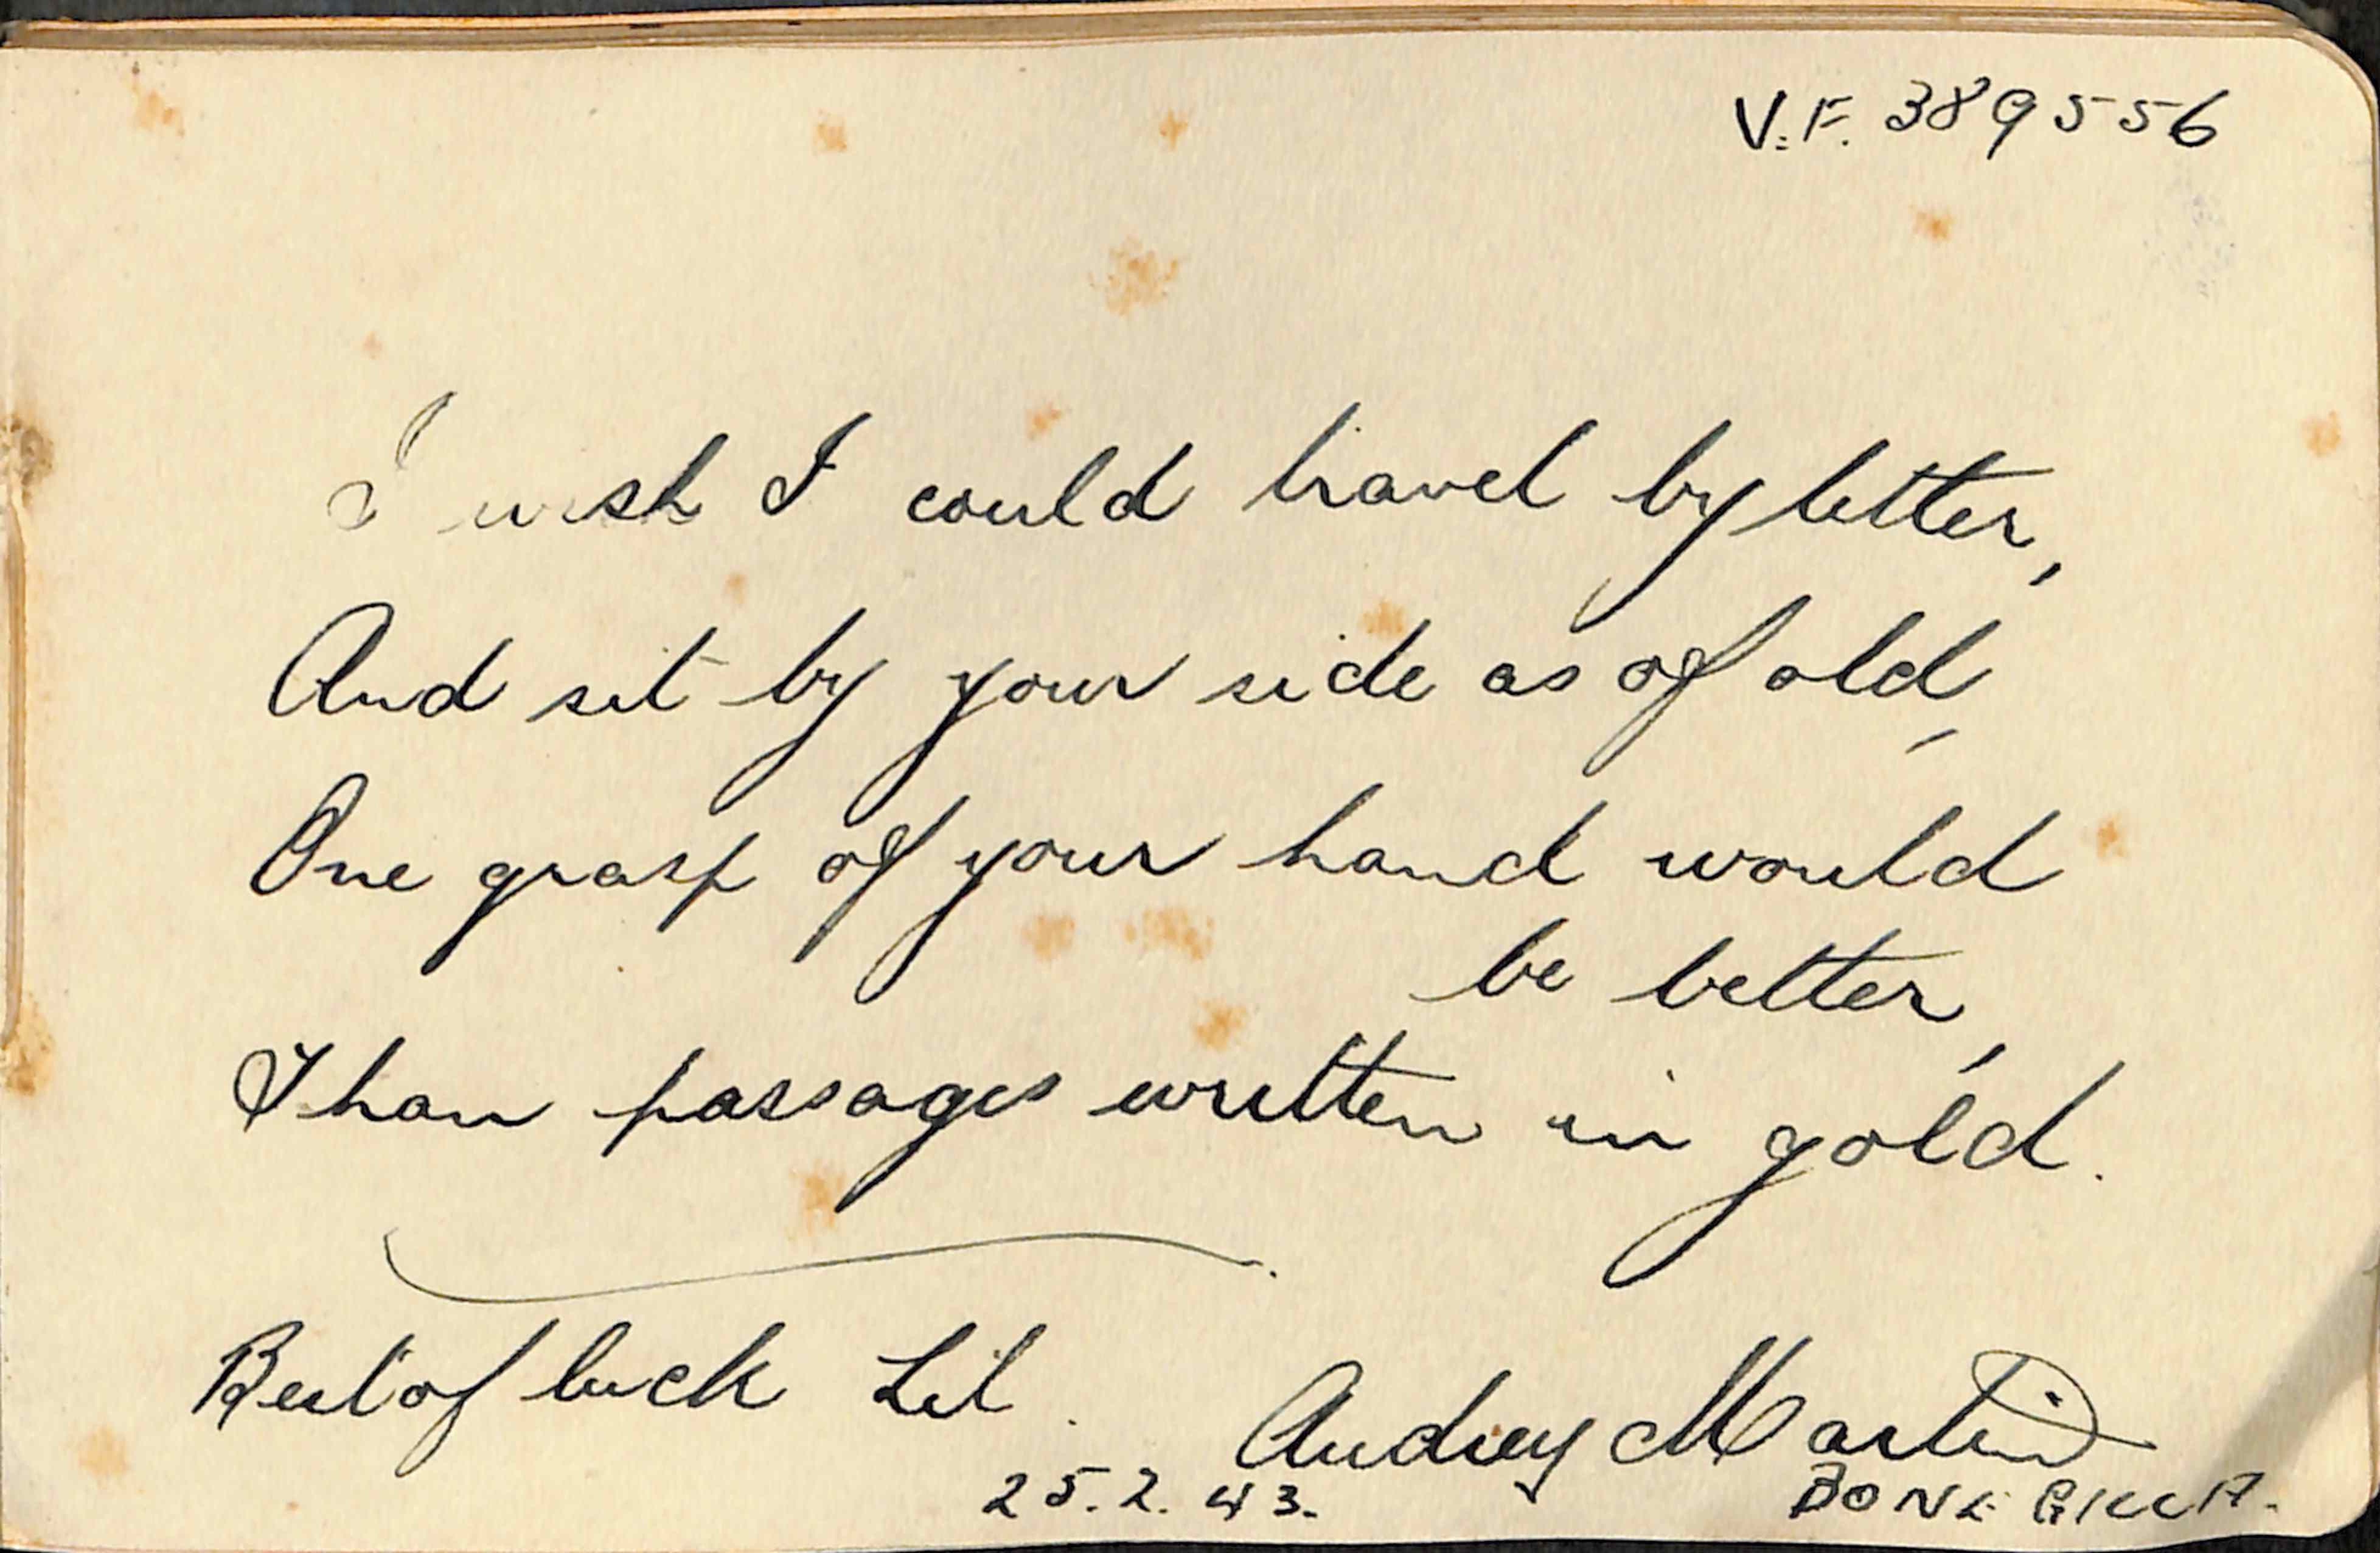 V.F. 389556
I wish I could travel by letter,
And sit by your side as of old,
One grasp of your hand would
be better,
Than passages written in gold.
Best of luck Lil.
Audrey Martin
25.2.43.
BONEGILLA.